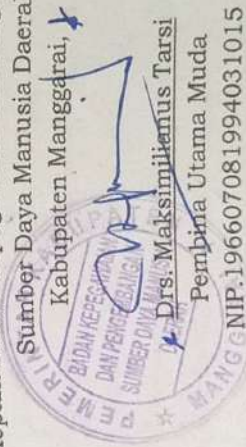 Sumber Daya Manusia Daerah
Kabupaten Manggarai,
Drs. Maksimilianus Tarsi
Pembina Utama Muda
NIP.196607081994031015
BADAN KEPEGAWAIAN
DAN PENGEMBANGAN
SUMBER DAYA MANUSIA